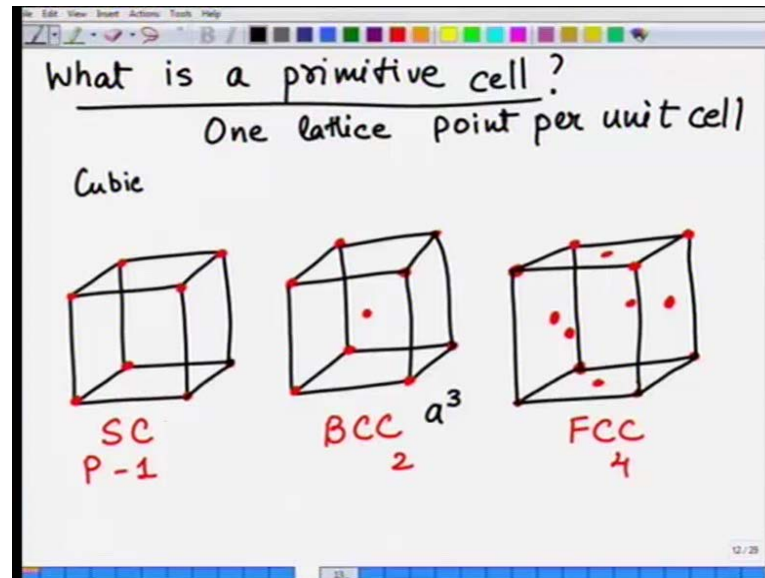 File Edit View Insert Actions Tools Help
What is a primitive cell?
One lattice point per unit cell
Cubic
a³
SC BCC FCC
P-1 2 4
12/29
13